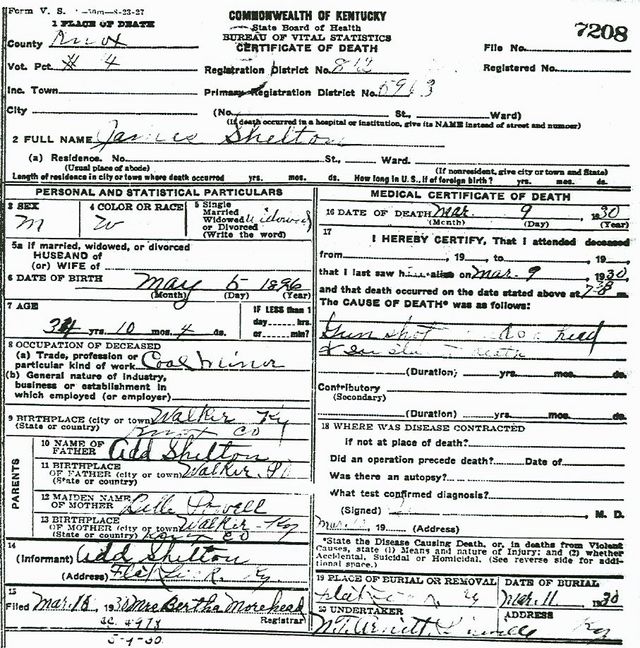 Form V. S. 8-23-27
COMMONWEALTH OF KENTUCKY
State Board of Health
BUREAU OF VITAL STATISTICS
CERTIFICATE OF DEATH
7208
1 PLACE OF DEATH
County Knox
File No.
Vot. Pct. # 4
Registration District No. 812
Registered No.
Inc. Town
Primary Registration District No. 6963
City (No. St., Ward)
(If death occurred in a hospital or institution, give its NAME instead of street and number)
2 FULL NAME James Shelton
(a) Residence. No. St., Ward.
(Usual place of abode) (If nonresident, give city or town and State)
Length of residence in city or town where death occurred yrs. mos. ds. How long in U. S., if of foreign birth? yrs. mos. ds.
PERSONAL AND STATISTICAL PARTICULARS
3 SEX M
4 COLOR OR RACE W
5 Single
Married
Widowed Widowed
or Divorced
(Write the word)
5a If married, widowed, or divorced
HUSBAND of
(or) WIFE of
6 DATE OF BIRTH May 5 1896
(Month) (Day) (Year)
7 AGE
yrs. 10 mos. 4 ds.
IF LESS than 1
day hrs.
or min?
8 OCCUPATION OF DECEASED
(a) Trade, profession or
particular kind of work Coal Miner
(b) General nature of industry,
business or establishment in
which employed (or employer)
9 BIRTHPLACE (city or town) Walker Ky
(State or country) Knox Co
PARENTS
10 NAME OF
FATHER Add Shelton
11 BIRTHPLACE
OF FATHER (city or town) Walker
(State or country)
12 MAIDEN NAME
OF MOTHER Powell
13 BIRTHPLACE
OF MOTHER (city or town) Walker Ky
(State or country) Knox Co
14
(Informant) Add Shelton
(Address) Flat Lick Ky
15
Filed Mar. 15, 1930 Mrs Bertha Morehead
Registrar
MEDICAL CERTIFICATE OF DEATH
16 DATE OF DEATH Mar. 9 1930
(Month) (Day) (Year)
17
I HEREBY CERTIFY, That I attended deceased
from , 19 to , 19
that I last saw h alive on Mar. 9 1930,
and that death occurred on the date stated above at m.
The CAUSE OF DEATH* was as follows:
Gun shot
(Duration) yrs. mos. ds.
Contributory
(Secondary)
(Duration) yrs. mos. ds.
18 WHERE WAS DISEASE CONTRACTED
if not at place of death?
Did an operation precede death? Date of
Was there an autopsy?
What test confirmed diagnosis?
(Signed) M. D.
Mar. 19 (Address)
*State the Disease Causing Death, or, in deaths from Violent
Causes, state (1) Means and nature of Injury; and (2) whether
Accidental, Suicidal or Homicidal. (See reverse side for addi-
tional space.)
19 PLACE OF BURIAL OR REMOVAL
Flat Lick Ky
DATE OF BURIAL
Mar. 11 1930
20 UNDERTAKER
ADDRESS
Ky